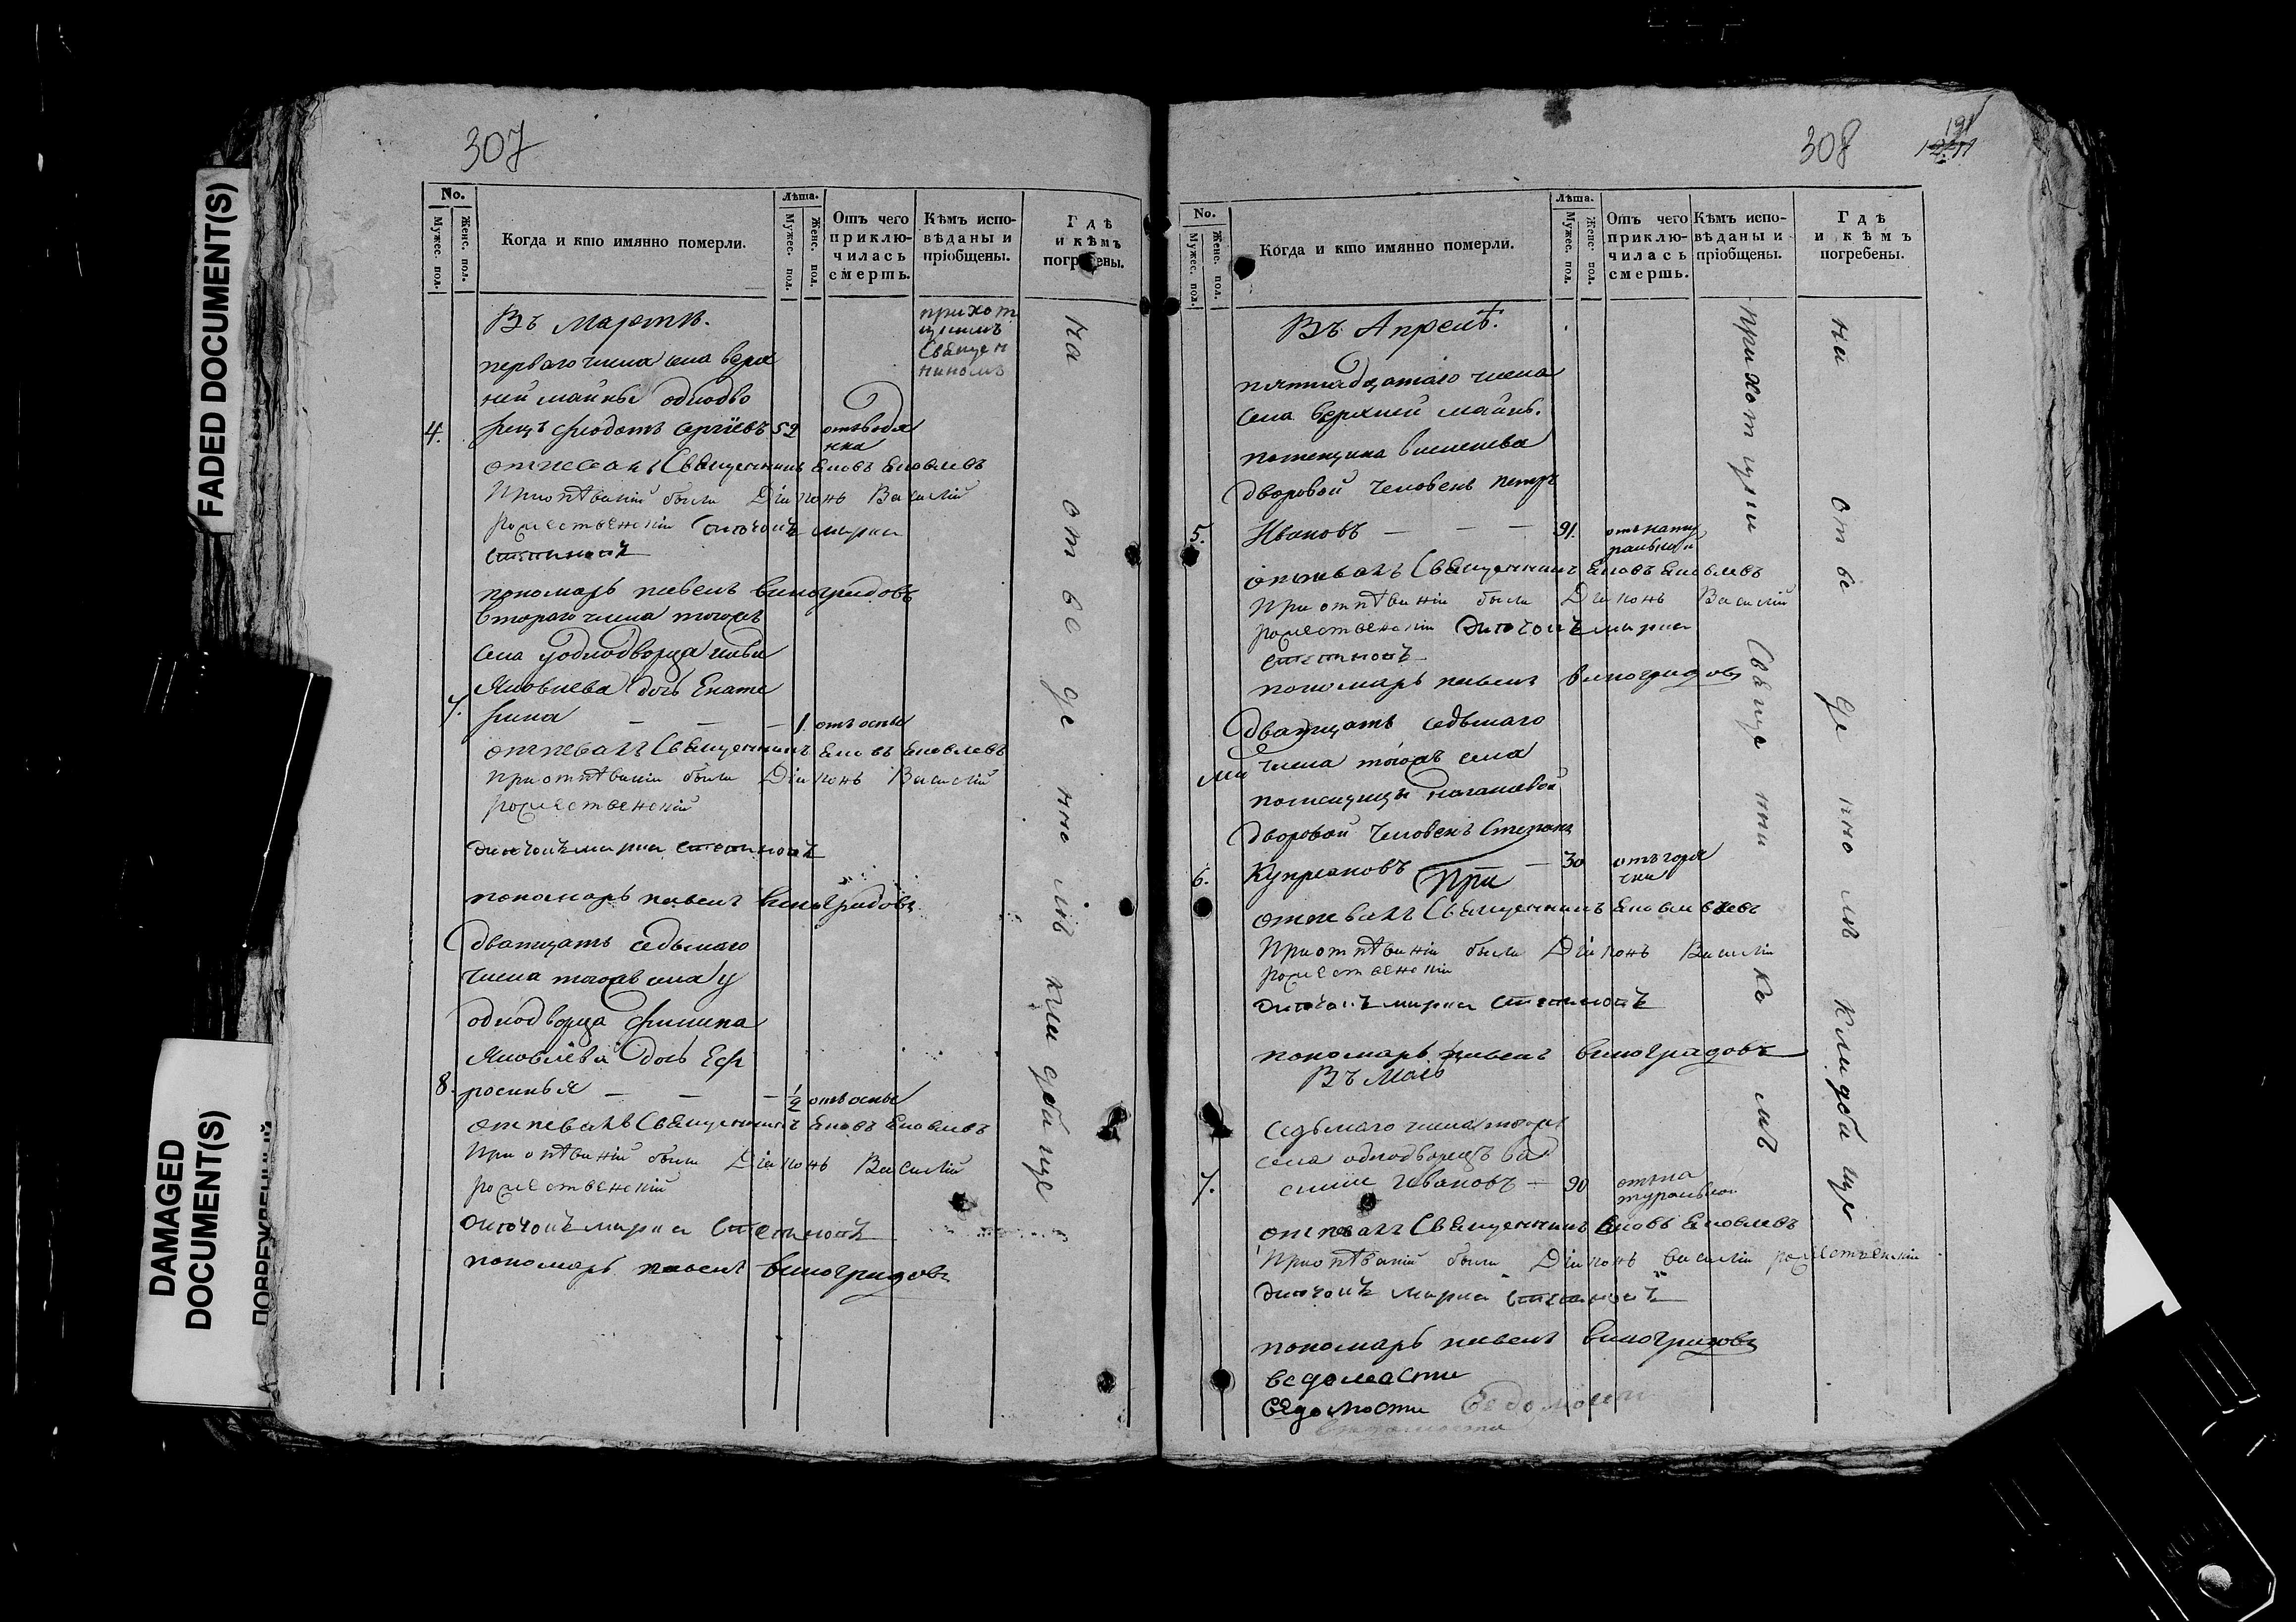 FADED DOCUMENT(S)
DAMAGED
DOCUMENT(S)
ПОВРЕЖДЕННЫЙ
307
No.
Мужес. пол.
Женс. пол.
Когда и кто имянно померли.
Лѣта.
Мужес. пол.
Женс. пол.
Отъ чего
приклю-
чилась
смерть.
Кѣмъ испо-
вѣданы и
пріобщены.
Гдѣ
и кѣмъ
погребены.
Въ Мартѣ.
прихот
цкимъ
Священ
никомъ
перваго числа села верх
ней майны однодво
4. рецъ Феодотъ Сергіевъ 52 отъ водя
нка
отпевалъ Священникъ Яковъ Яковлевъ
При отпѣваніи были Діаконъ Василій
рожественскій дьячокъ марка
пономарь павелъ виноградовъ
втораго числа тогожъ
села у однодворца
Яковлева дочь Екате
7. рина — — — 1. отъ оспы
отпевалъ Священникъ Яковъ Яковлевъ
При отпѣваніи были Діаконъ Василій
рожественскій
дьячокъ марка
пономарь павелъ виноградовъ
дватцать седьмаго
числа тогожъ села у
однодворца Филипа
Яковлева дочь Еф
8. росинья — — — 1/2 отъ оспы
отпевалъ Священникъ Яковъ Яковлевъ
При отпѣваніи были Діаконъ Василій
рожественскій
дьячокъ марка
пономарь павелъ виноградовъ
на отведеномъ кладбище
308
191
No.
Мужес. пол.
Женс. пол.
Когда и кто имянно померли.
Лѣта.
Мужес. пол.
Женс. пол.
Отъ чего
приклю-
чилась
смерть.
Кѣмъ испо-
вѣданы и
пріобщены.
Гдѣ
и кѣмъ
погребены.
Въ Апрелѣ.
пятнадцатаго числа
села верхней майны.
помещика
дворовой человекъ петръ
5. Ивановъ — — — 91. отъ нату
ральной
отпевалъ Священникъ Яковъ Яковлевъ
При отпѣваніи были Діаконъ Василій
рожественскій дьячокъ марка
пономарь павелъ виноградовъ
дватцать седьмаго
числа тогожъ села
помещицы
дворовой человекъ Степанъ
6. Купреановъ При — 30 отъ горя
чки
отпевалъ Священникъ
При отпѣваніи были Діаконъ Василій
рожественскій
дьячокъ марка
пономарь павелъ виноградовъ
Въ Маѣ
седьмаго числа тогожъ
села однодворецъ Ва
7. силий Ивановъ — 90 отъ на
туральной
отпевалъ Священникъ Яковъ Яковлевъ
При отпѣваніи были Діаконъ василій рожественскій
дьячокъ марка
пономарь павелъ виноградовъ
ведомасти
ведомости ведомости
прихотцкимъ Священникомъ
на отведеномъ кладбище